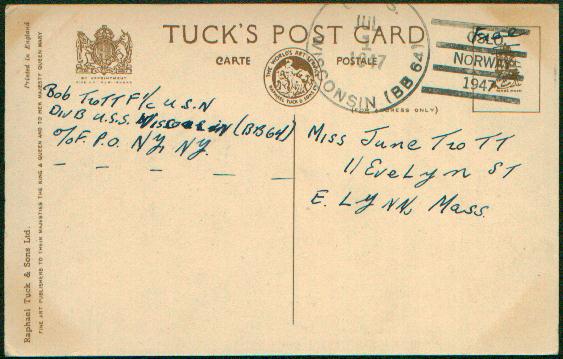 TUCK'S POST CARD
CARTE POSTALE
(FOR ADDRESS ONLY)
BY APPOINTMENT
THE WORLD'S ART SERVICE
RAPHAEL TUCK & SONS LTD
Printed in England
Raphael Tuck & Sons Ltd.
FINE ART PUBLISHERS TO THEIR MAJESTIES THE KING & QUEEN AND TO HER MAJESTY QUEEN MARY
U.S.S. WISCONSIN (BB 64)
JUL
Free
OSLO,
NORWAY
1947
Bob Trott F1/c U.S.N
Div B U.S.S. Wisconsin (BB64)
c/o F.P.O. NY, NY.
Miss June Trott
11 Evelyn St
E. Lynn, Mass.